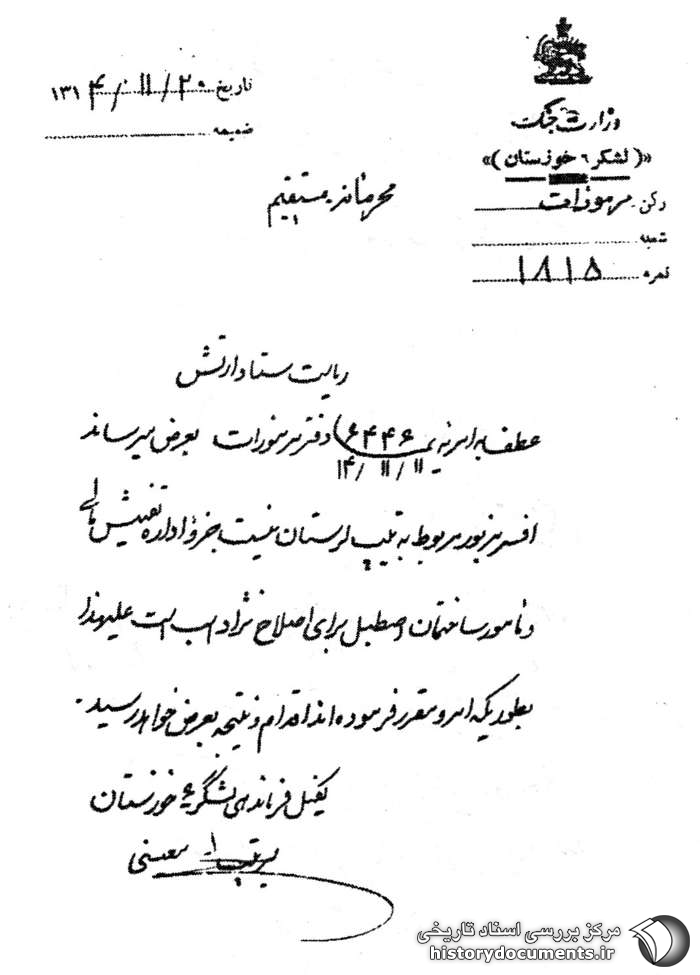 وزارت جنگ
«(لشکر ۶ خوزستان)»
رکن مرموزات
شعبه
نمره ۱۸۱۵
تاریخ ۲۰/۱۱/۱۳۱۴
ضمیمه
محرمانه مستقیم
ریاست ستاد ارتش
عطف به امریه ۶۴۴۶ دفتر مرموزات بعرض میرساند
۱۱/۱۱/۱۴
افسر مزبور مربوط به تیپ لرستان نیست جزو اداره تفتیش مالی
و مامور ساختمان اصطبل برای اصلاح نژاد اسب است علیهذا
بطوریکه امر و مقرر فرموده اند اقدام و نتیجه بعرض خواهد رسید.
کفیل فرماندهی لشگر ۶ خوزستان
سرتیپ ۱ معینی
مرکز بررسی اسناد تاریخی
historydocuments.ir